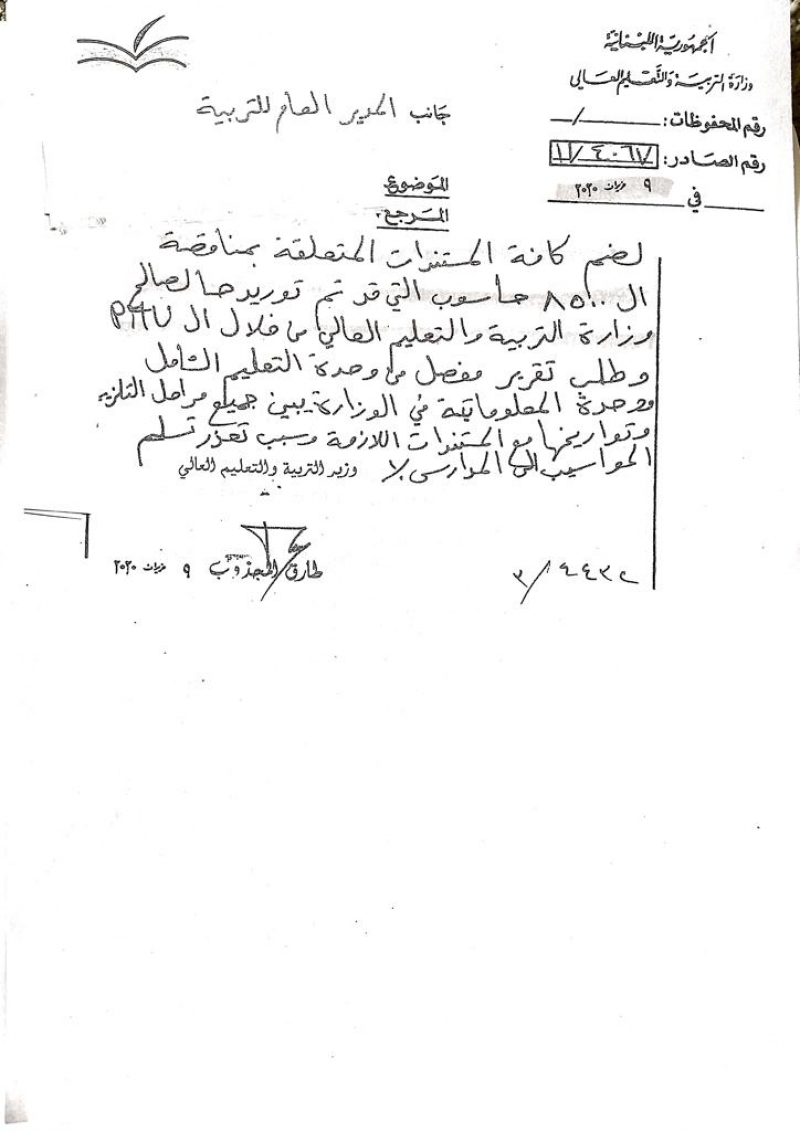 الجمهورية اللبنانية
وزارة التربية والتعليم العالي
رقم المحفوظات: /
رقم الصادر: ٤٠٦٧/١١
في ٩ حزيران ٢٠٢٠
جانب المدير العام للتربية
الموضوع
المرجع:
لضم كافة المستندات المتعلقة بمناقصة
ال ٨٥٠٠ حاسوب التي قد تم توريدها لصالح
وزارة التربية والتعليم العالي من خلال ال PITU
وطلب تقرير مفصل من وحدة التعليم الشامل
ووحدة المعلوماتية في الوزارة يبين جميع مراحل التلزيم
وتواريخها مع المستندات اللازمة وسبب تعذر تسليم
الحواسيب الى المدارس./
وزير التربية والتعليم العالي
طارق المجذوب ٩ حزيران ٢٠٢٠
٣/٤٤٣٢